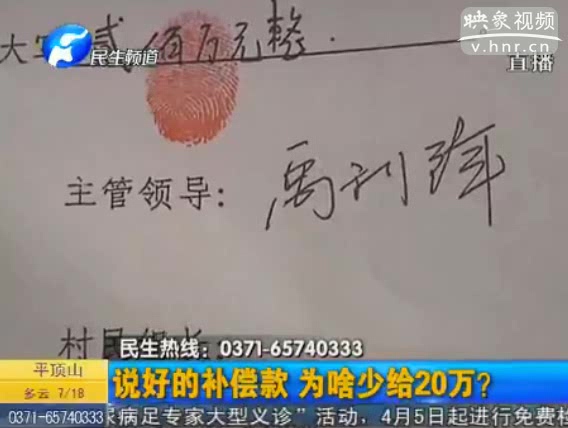 映象视频
v.hnr.cn
民生频道
直播
大写 贰佰万元整
主管领导:
村民组长:
民生热线:0371-65740333
平顶山
多云 7/18
说好的补偿款 为啥少给20万?
0371-65740333
尿病足专家大型义诊”活动,4月5日起进行免费检